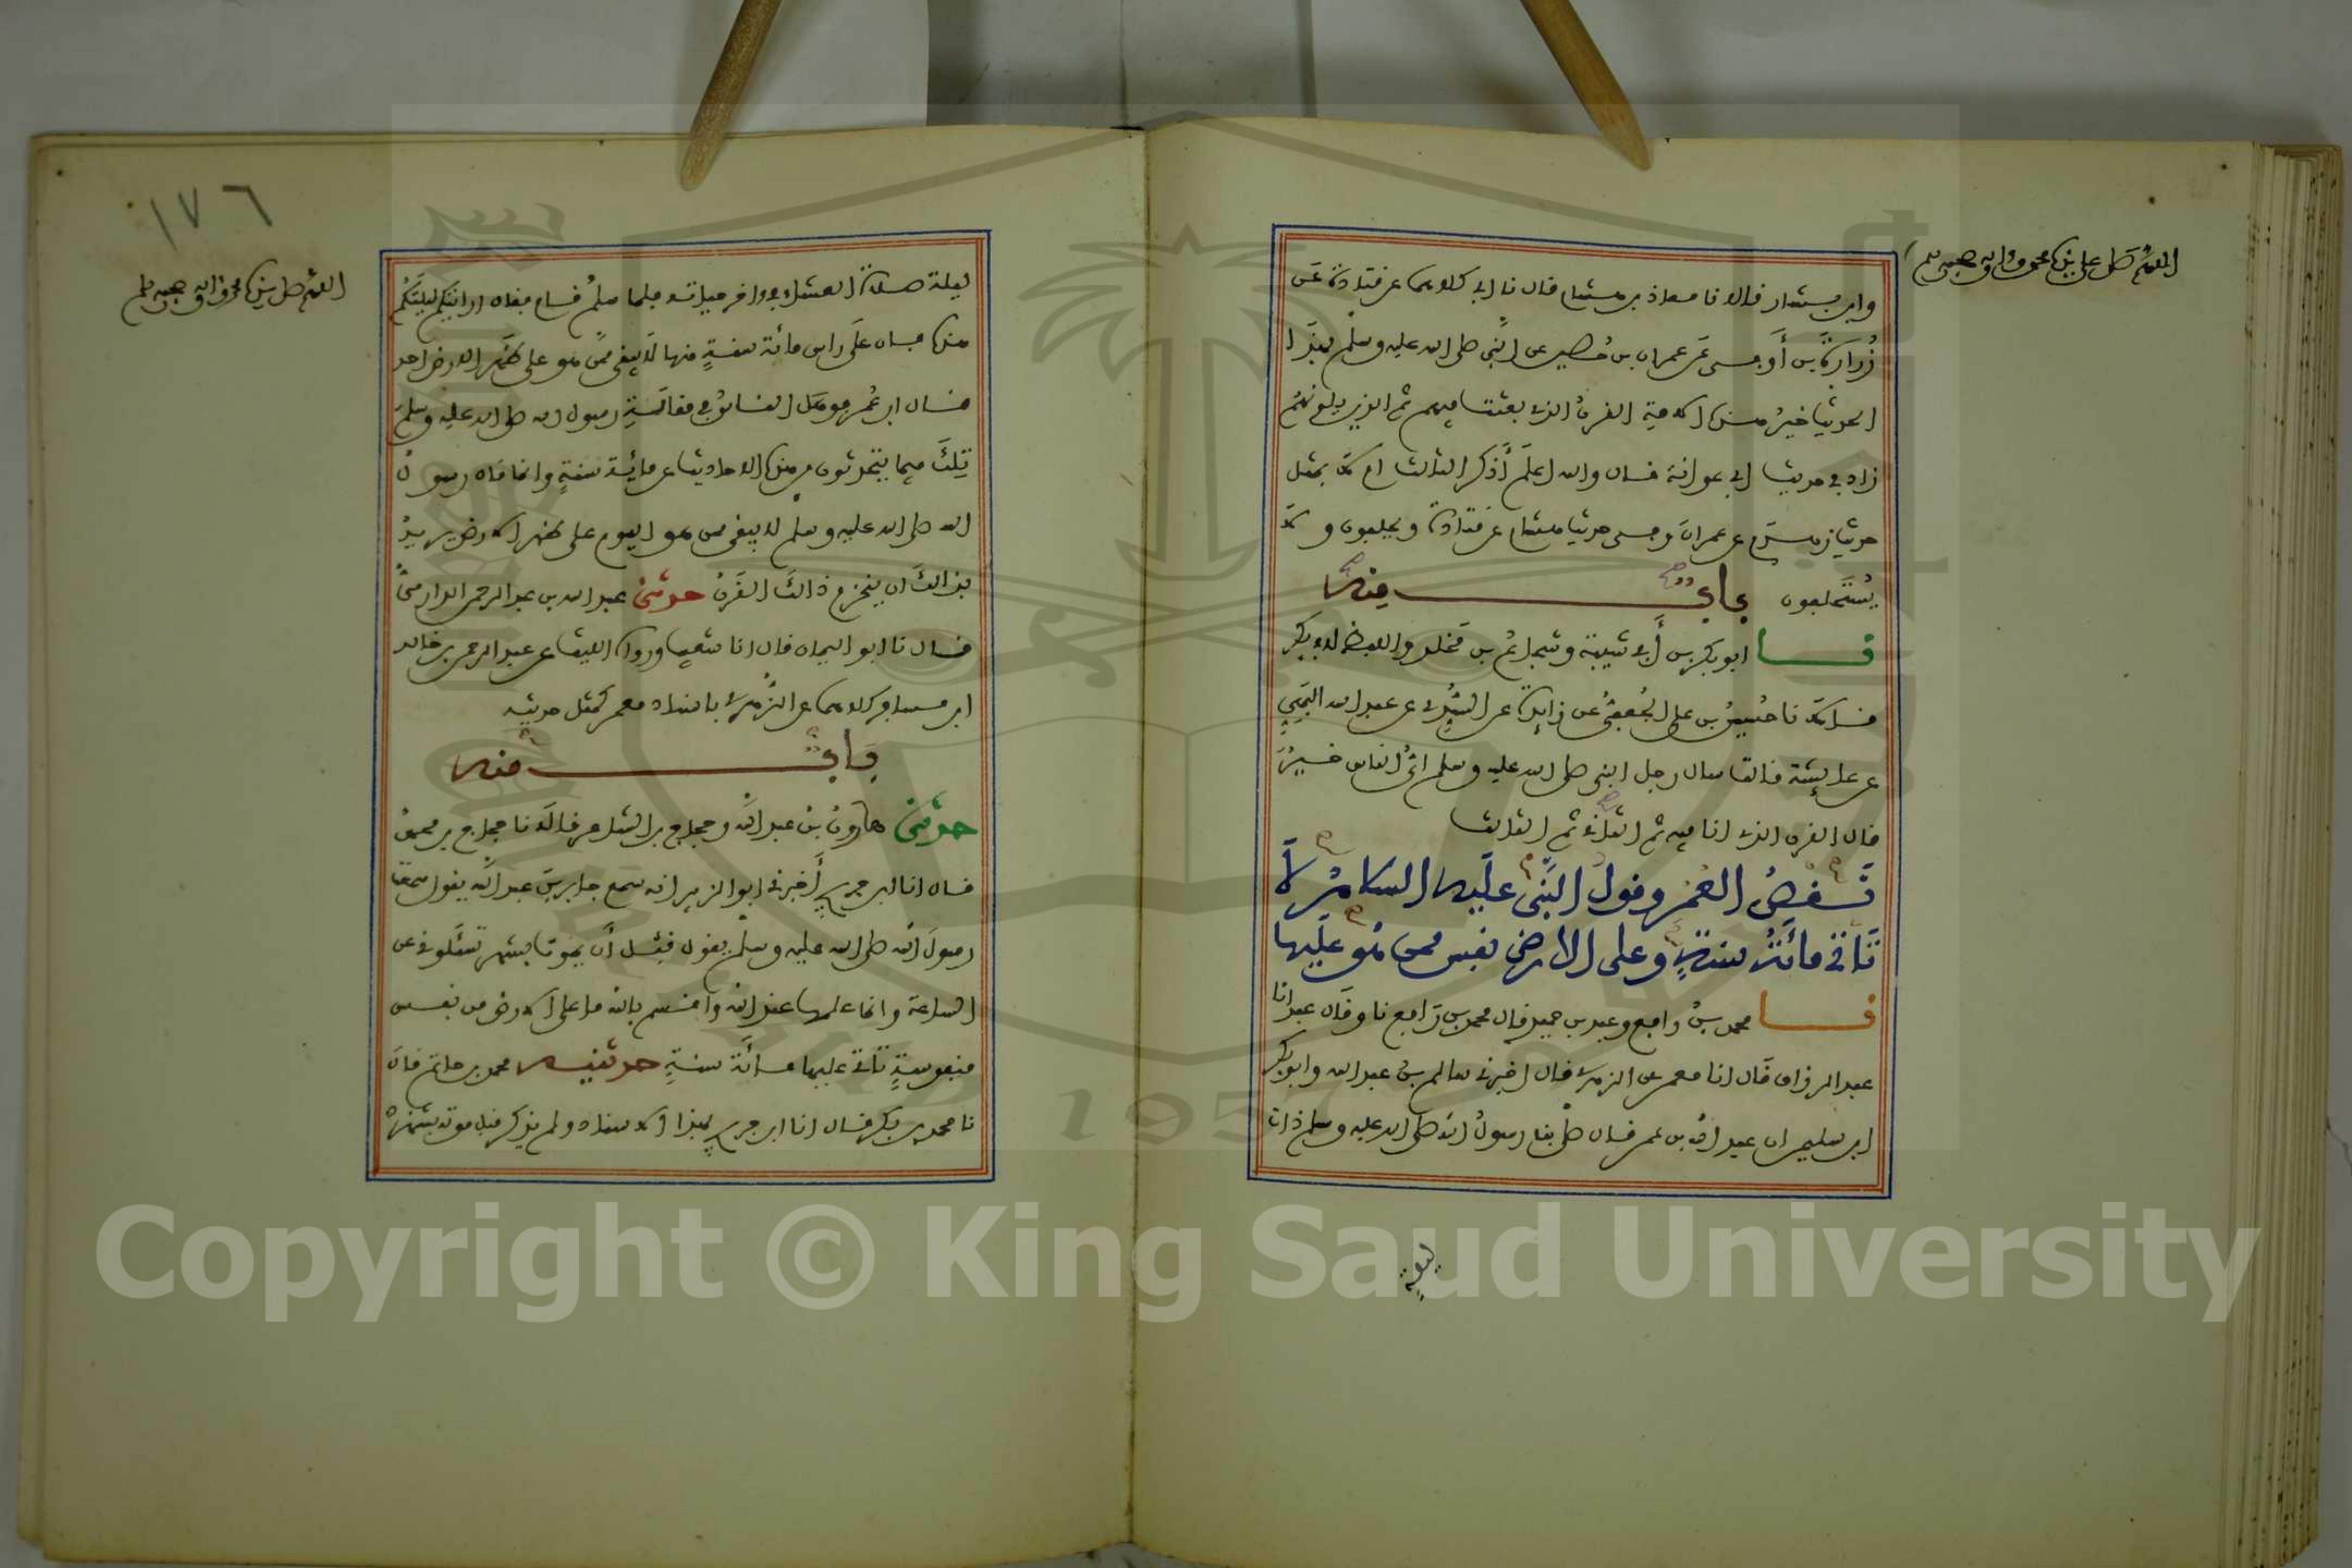 اللهم صل على سيدنا محمد وآله وصحبه وسلم
وابن بشار قالا نا معاذ بن هشام قال نا ابي كلاهما عن قتادة عن
زرارة بن أوفى عن عمران بن حصين عن النبي صلى الله عليه وسلم بهذا
الحديث خير هذه الامة القرن الذي بعثت فيهم ثم الذين يلونهم
زاد في حديث ابي عوانة قال والله اعلم أذكر الثالث ام لا بمثل
حديث زهدم عن عمران وفي حديث هشام عن قتادة ويحلفون ولا
يستحلفون باب منه
نا ابو بكر بن أبي شيبة وشجاع بن مخلد واللفظ لابي بكر
قالا نا حسين بن علي الجعفي عن زايدة عن السدي عن عبد الله البهي
عن عايشة قالت سال رجل النبي صلى الله عليه وسلم اي الناس خير
قال القرن الذي انا فيه ثم الثاني ثم الثالث
نقص العمر وقول النبي عليه السلام لا
تاتي مائة سنة وعلى الارض نفس ممن هو عليها
نا محمد بن رافع وعبد بن حميد قال محمد بن رافع نا وقال عبد انا
عبد الرزاق قال انا معمر عن الزهري قال اخبرني سالم بن عبد الله وابو بكر
ابن سليمن ان عبد الله بن عمر قال صلى بنا رسول الله صلى الله عليه وسلم ذات
ليلة
١٧٦
اللهم صل سيدنا محمد وآله وصحبه وسلم
ليلة صلاة العشاء في واخر حياته فلما سلم قام فقال ارايتكم ليلتكم
هذه فان على راس مائة سنة منها لا يبقى ممن هو على ظهر الارض احد
قال ابن عمر فوهل الناس في مقالة رسول الله صلى الله عليه وسلم
تلك فيما يتحدثون من هذه الاحاديث عن مائة سنة وانما قال رسول
الله صلى الله عليه وسلم لا يبقى ممن هو اليوم على ظهر الارض يريد
بذالك ان ينخرم ذالك القرن حدثني عبد الله بن عبد الرحمن الدارمي
قال نا ابو اليمان قال انا شعيب ورواه الليث عن عبد الرحمن بن خالد
ابن مسافر كلاهما عن الزهري باسناد معمر كمثل حديثه
باب منه
حدثني هارون بن عبد الله وحجاج بن الشاعر قالا نا حجاج بن محمد
قال انا ابن جريج أخبرني ابو الزبير انه سمع جابر بن عبد الله يقول سمعت
رسول الله صلى الله عليه وسلم يقول قبل أن يموت بشهر تسئلوني عن
الساعة وانما علمها عند الله واقسم بالله ما على الارض من نفس
منفوسة تاتي عليها مائة سنة حدثنيه محمد بن حاتم قال
نا محمد بن بكر قال انا ابن جريج بهذا الاسناد ولم يذكر قبل موته بشهر
Copyright © King Saud University
1957